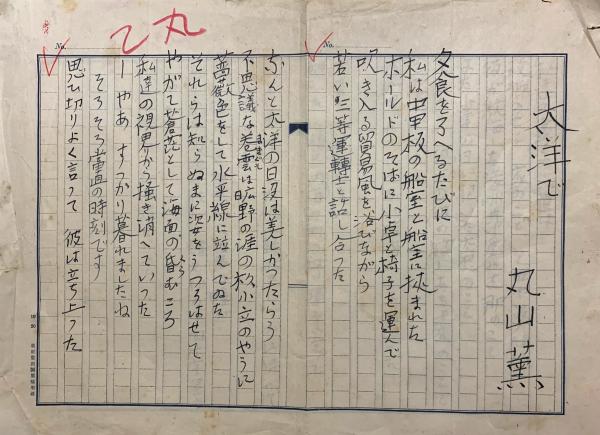 大洋で
丸山薫
夕食を了へるたびに
私は中甲板の船室と船室に挟まれた
ホールドのそばに小卓と椅子を運んで
吹き入る貿易風を浴びながら
若い三等運轉士と話し合った
なんと大洋の日没は美しかつたらう
不思議な蒼雲は広野の涯の杉小立のやうに
薔薇色をして水平線に並んでゐた
それらは知らぬまに姿をうつろはせて
やがて蒼茫として海面の昏むころ
私達の視界から掻き消へていった
ーやあ すっかり暮れましたね
そろそろ當直の時刻です
思ひ切りよく言って 彼は立ち上った
丸
乙
No.
No.